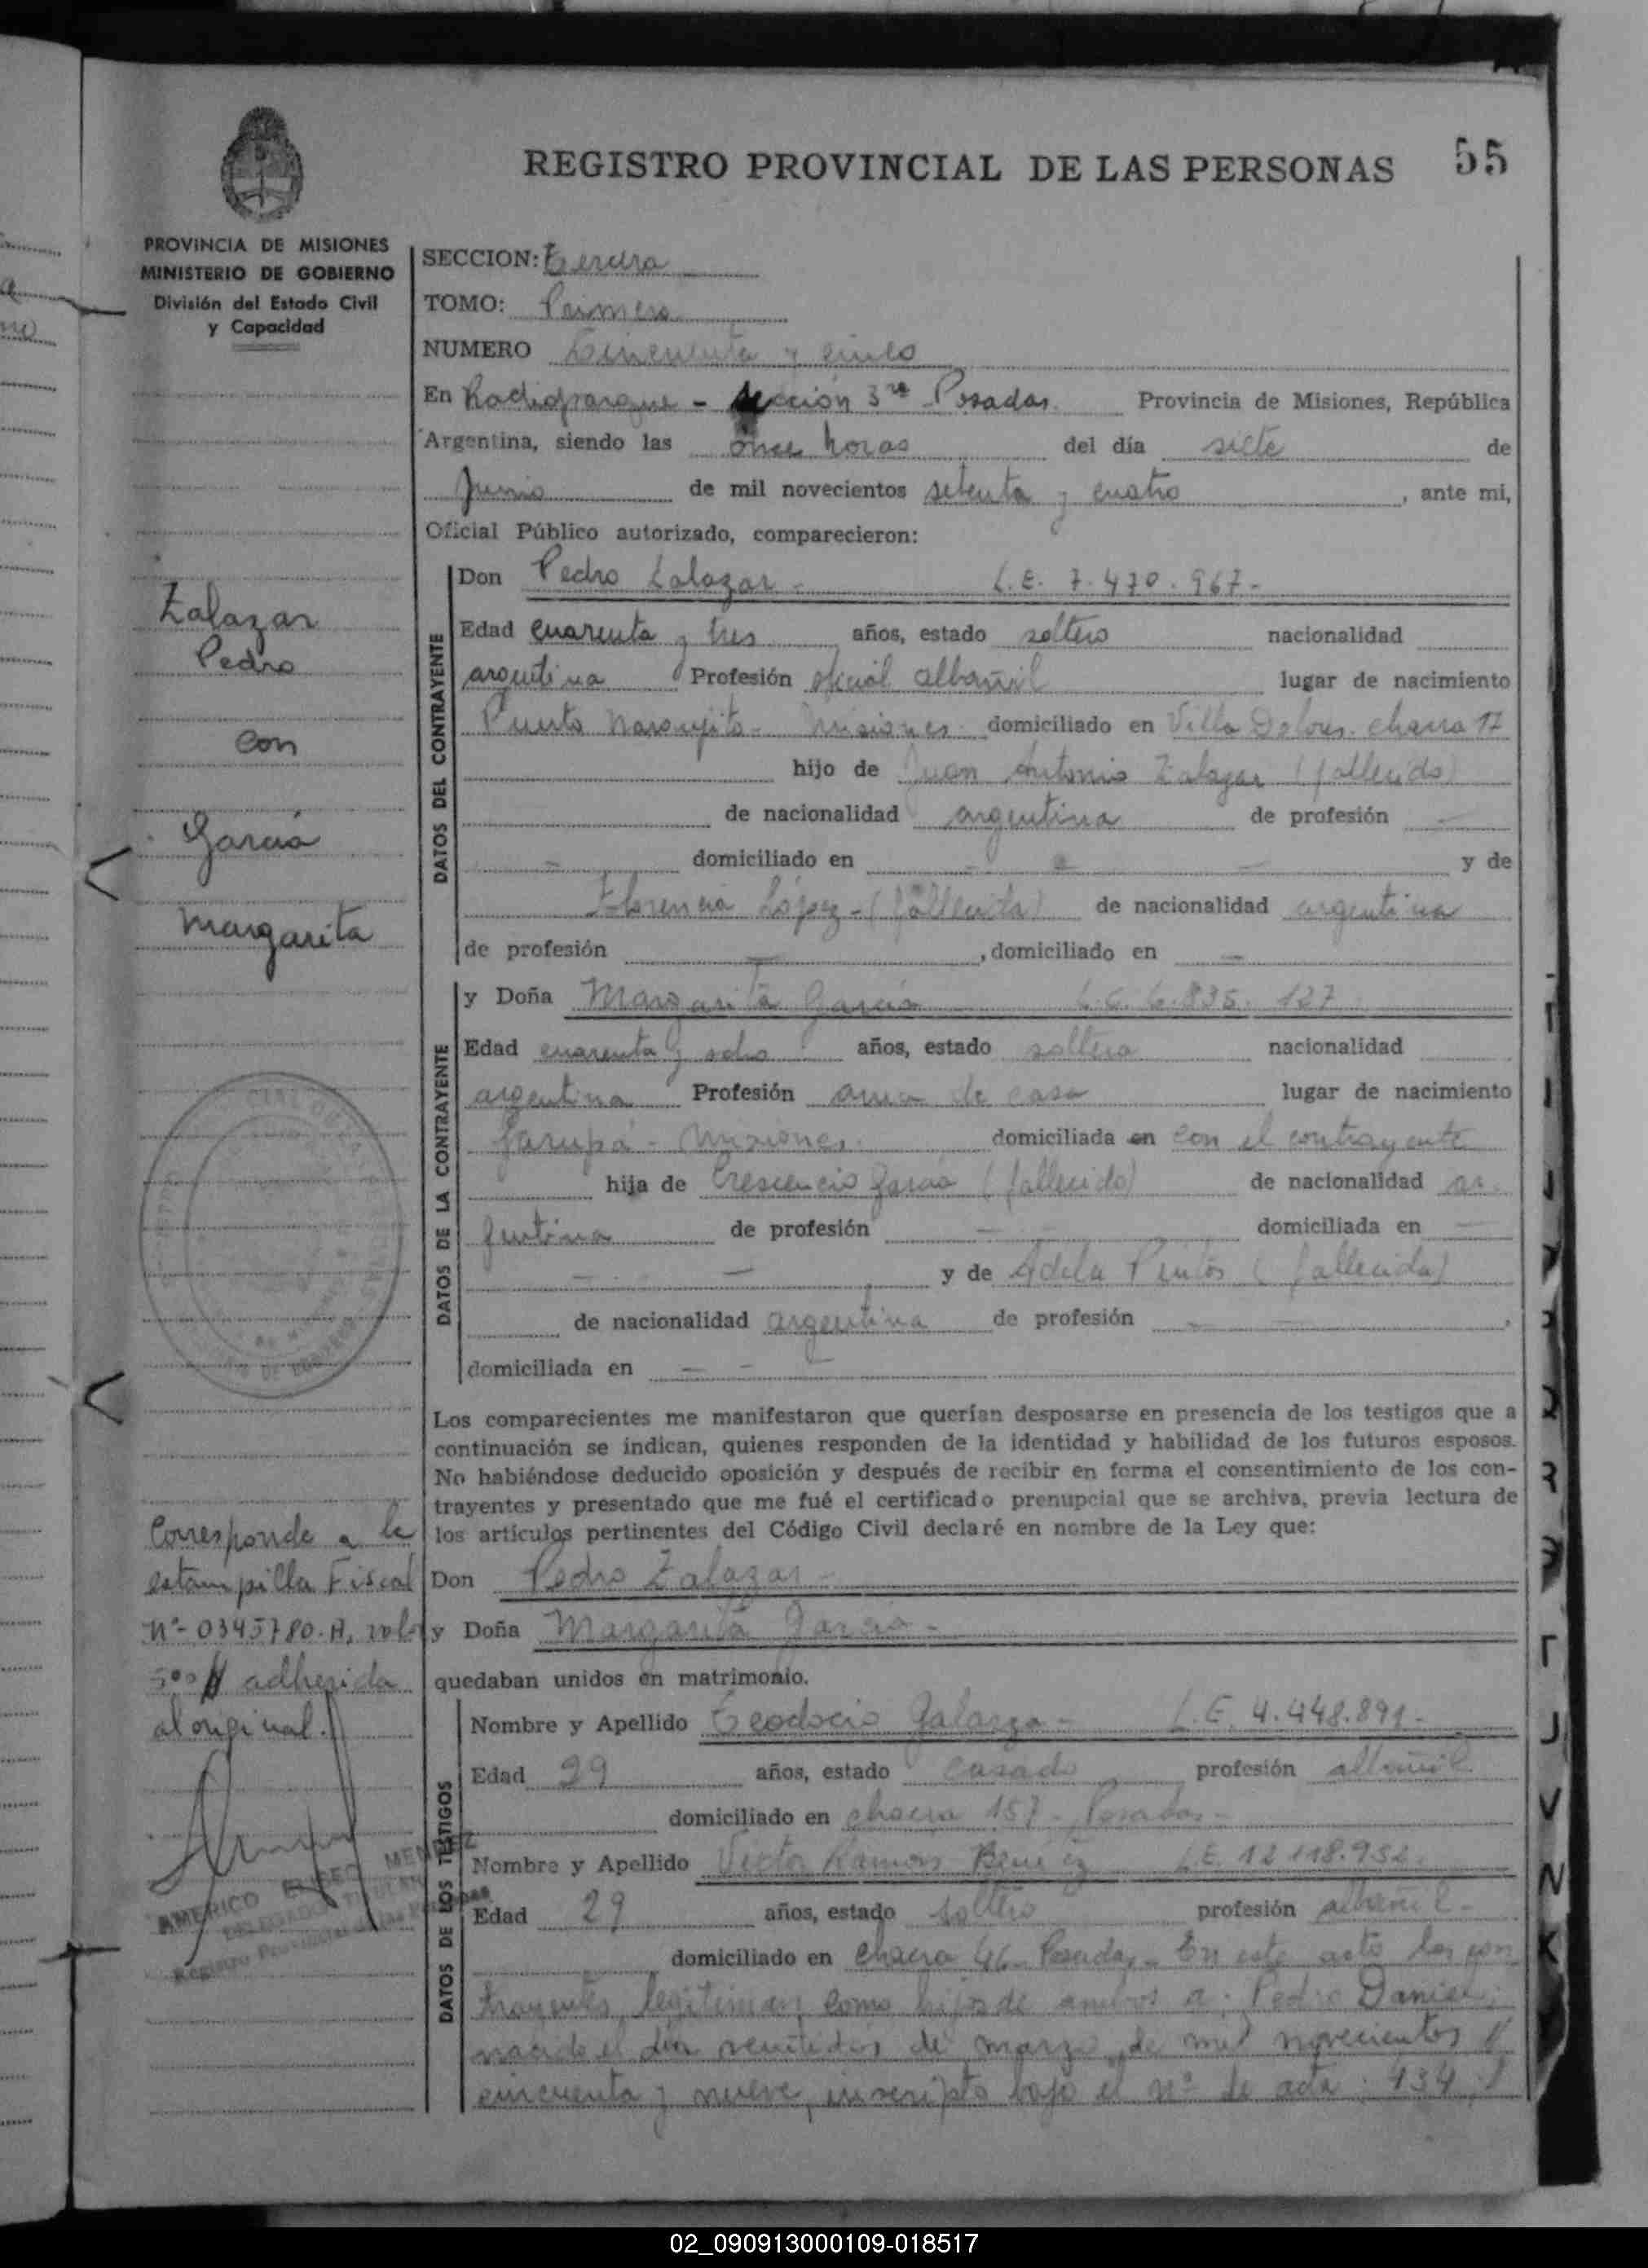 REGISTRO PROVINCIAL DE LAS PERSONAS 55
PROVINCIA DE MISIONES
MINISTERIO DE GOBIERNO
División del Estado Civil
y Capacidad
SECCION: Tercera
TOMO: Primero
NUMERO Cincuenta y cinco
En Radioparque - sección 3ra Posadas. Provincia de Misiones, República
Argentina, siendo las once horas del día siete de
Junio de mil novecientos setenta y cuatro, ante mi,
Oficial Público autorizado, comparecieron:
Zalazar
Pedro
con
García
Margarita
DATOS DEL CONTRAYENTE
Don Pedro Zalazar - L.E. 7.470.967-
Edad cuarenta y tres años, estado soltero nacionalidad
argentina Profesión oficial albañil lugar de nacimiento
Puerto Naranjito - Misiones domiciliado en Villa Dolores. chacra 17
hijo de Juan Antonio Zalazar (fallecido)
de nacionalidad argentina de profesión -
- domiciliado en - - - y de
Florencia López - (fallecida) de nacionalidad argentina
de profesión -, domiciliado en -
DATOS DE LA CONTRAYENTE
y Doña Margarita García L.C. 6.835.127
Edad cuarenta y ocho años, estado soltera nacionalidad
argentina Profesión ama de casa lugar de nacimiento
Garupá - Misiones. domiciliada en con el contrayente
hija de Crescencio García (fallecido) de nacionalidad ar
gentina de profesión - - domiciliada en -
- - y de Adela Pintos (fallecida)
de nacionalidad argentina de profesión - -,
domiciliada en - - -
Los comparecientes me manifestaron que querían desposarse en presencia de los testigos que a
continuación se indican, quienes responden de la identidad y habilidad de los futuros esposos.
No habiéndose deducido oposición y después de recibir en forma el consentimiento de los con-
trayentes y presentado que me fué el certificado prenupcial que se archiva, previa lectura de
los artículos pertinentes del Código Civil declaré en nombre de la Ley que:
Don Pedro Zalazar -
y Doña Margarita García -
quedaban unidos en matrimonio.
Corresponde a la
estampilla Fiscal
Nº- 0345780-A, valor
500 adherida
al original.
AMERICO ELISEO MENDEZ
DELEGADO TITULAR
Registro Provincial de las Personas
DATOS DE LOS TESTIGOS
Nombre y Apellido Teodocio Galarza - L.E. 4.448.891-
Edad 29 años, estado casado profesión albañil
domiciliado en chacra 157 - Posadas -
Nombre y Apellido Victor Ramón Benitez L.E. 12.118.952
Edad 29 años, estado soltero profesión albañil -
domiciliado en chacra 46 - Posadas - En este acto los con
trayentes legitiman como hijo de ambos a: Pedro Daniel;
nacido el día veintidos de marzo de mil novecientos
cincuenta y nueve, inscripto bajo el nº de acta: 434
02_090913000109-018517